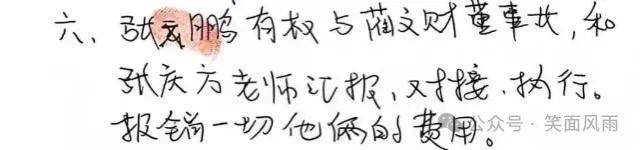 六、张云鹏有权与蔺文财董事长,和
张庆方老师汇报、对接、执行。
报销一切他俩的费用。
公众号·笑面风雨